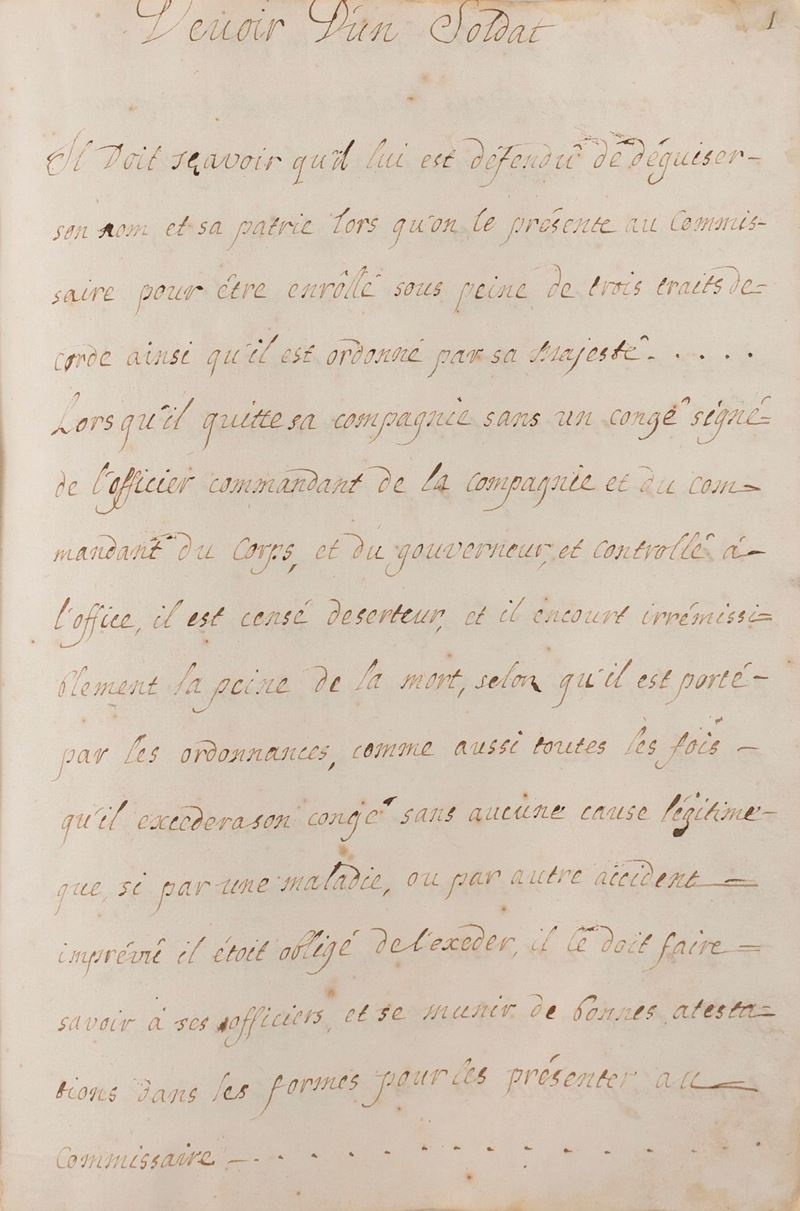 Devoir D'un Soldat
1
Il Doit sçavoir qu'il lui est défendu de déguiser-
son nom et sa patrie lors qu'on le présente au Commis-
saire pour être enrôllé sous peine de trois traits de=
corde ainsi qu'il est ordonné par sa Majesté. . . . .
Lors qu'il quitte sa compagnie sans un congé signé=
de l'officier commandant de la compagnie et du com=
mandant du Corps, et du gouverneur, et Controllé à-
l'office, il est censé deserteur, et il encourt irrémissi=
blement la peine de la mort, selon qu'il est porté-
par les ordonnances, comme aussi toutes les fois -
qu'il excedera son congé sans aucune cause légitime-
que, si par une maladie, ou par autre accident =
imprévû il étoit obligé de l'exeder, il le doit faire =
savoir à ses officiers, et se munir de bonnes atesta=
tions dans les formes pour les présenter au =
Commissaire - . . . . . . . . . . . . . . .